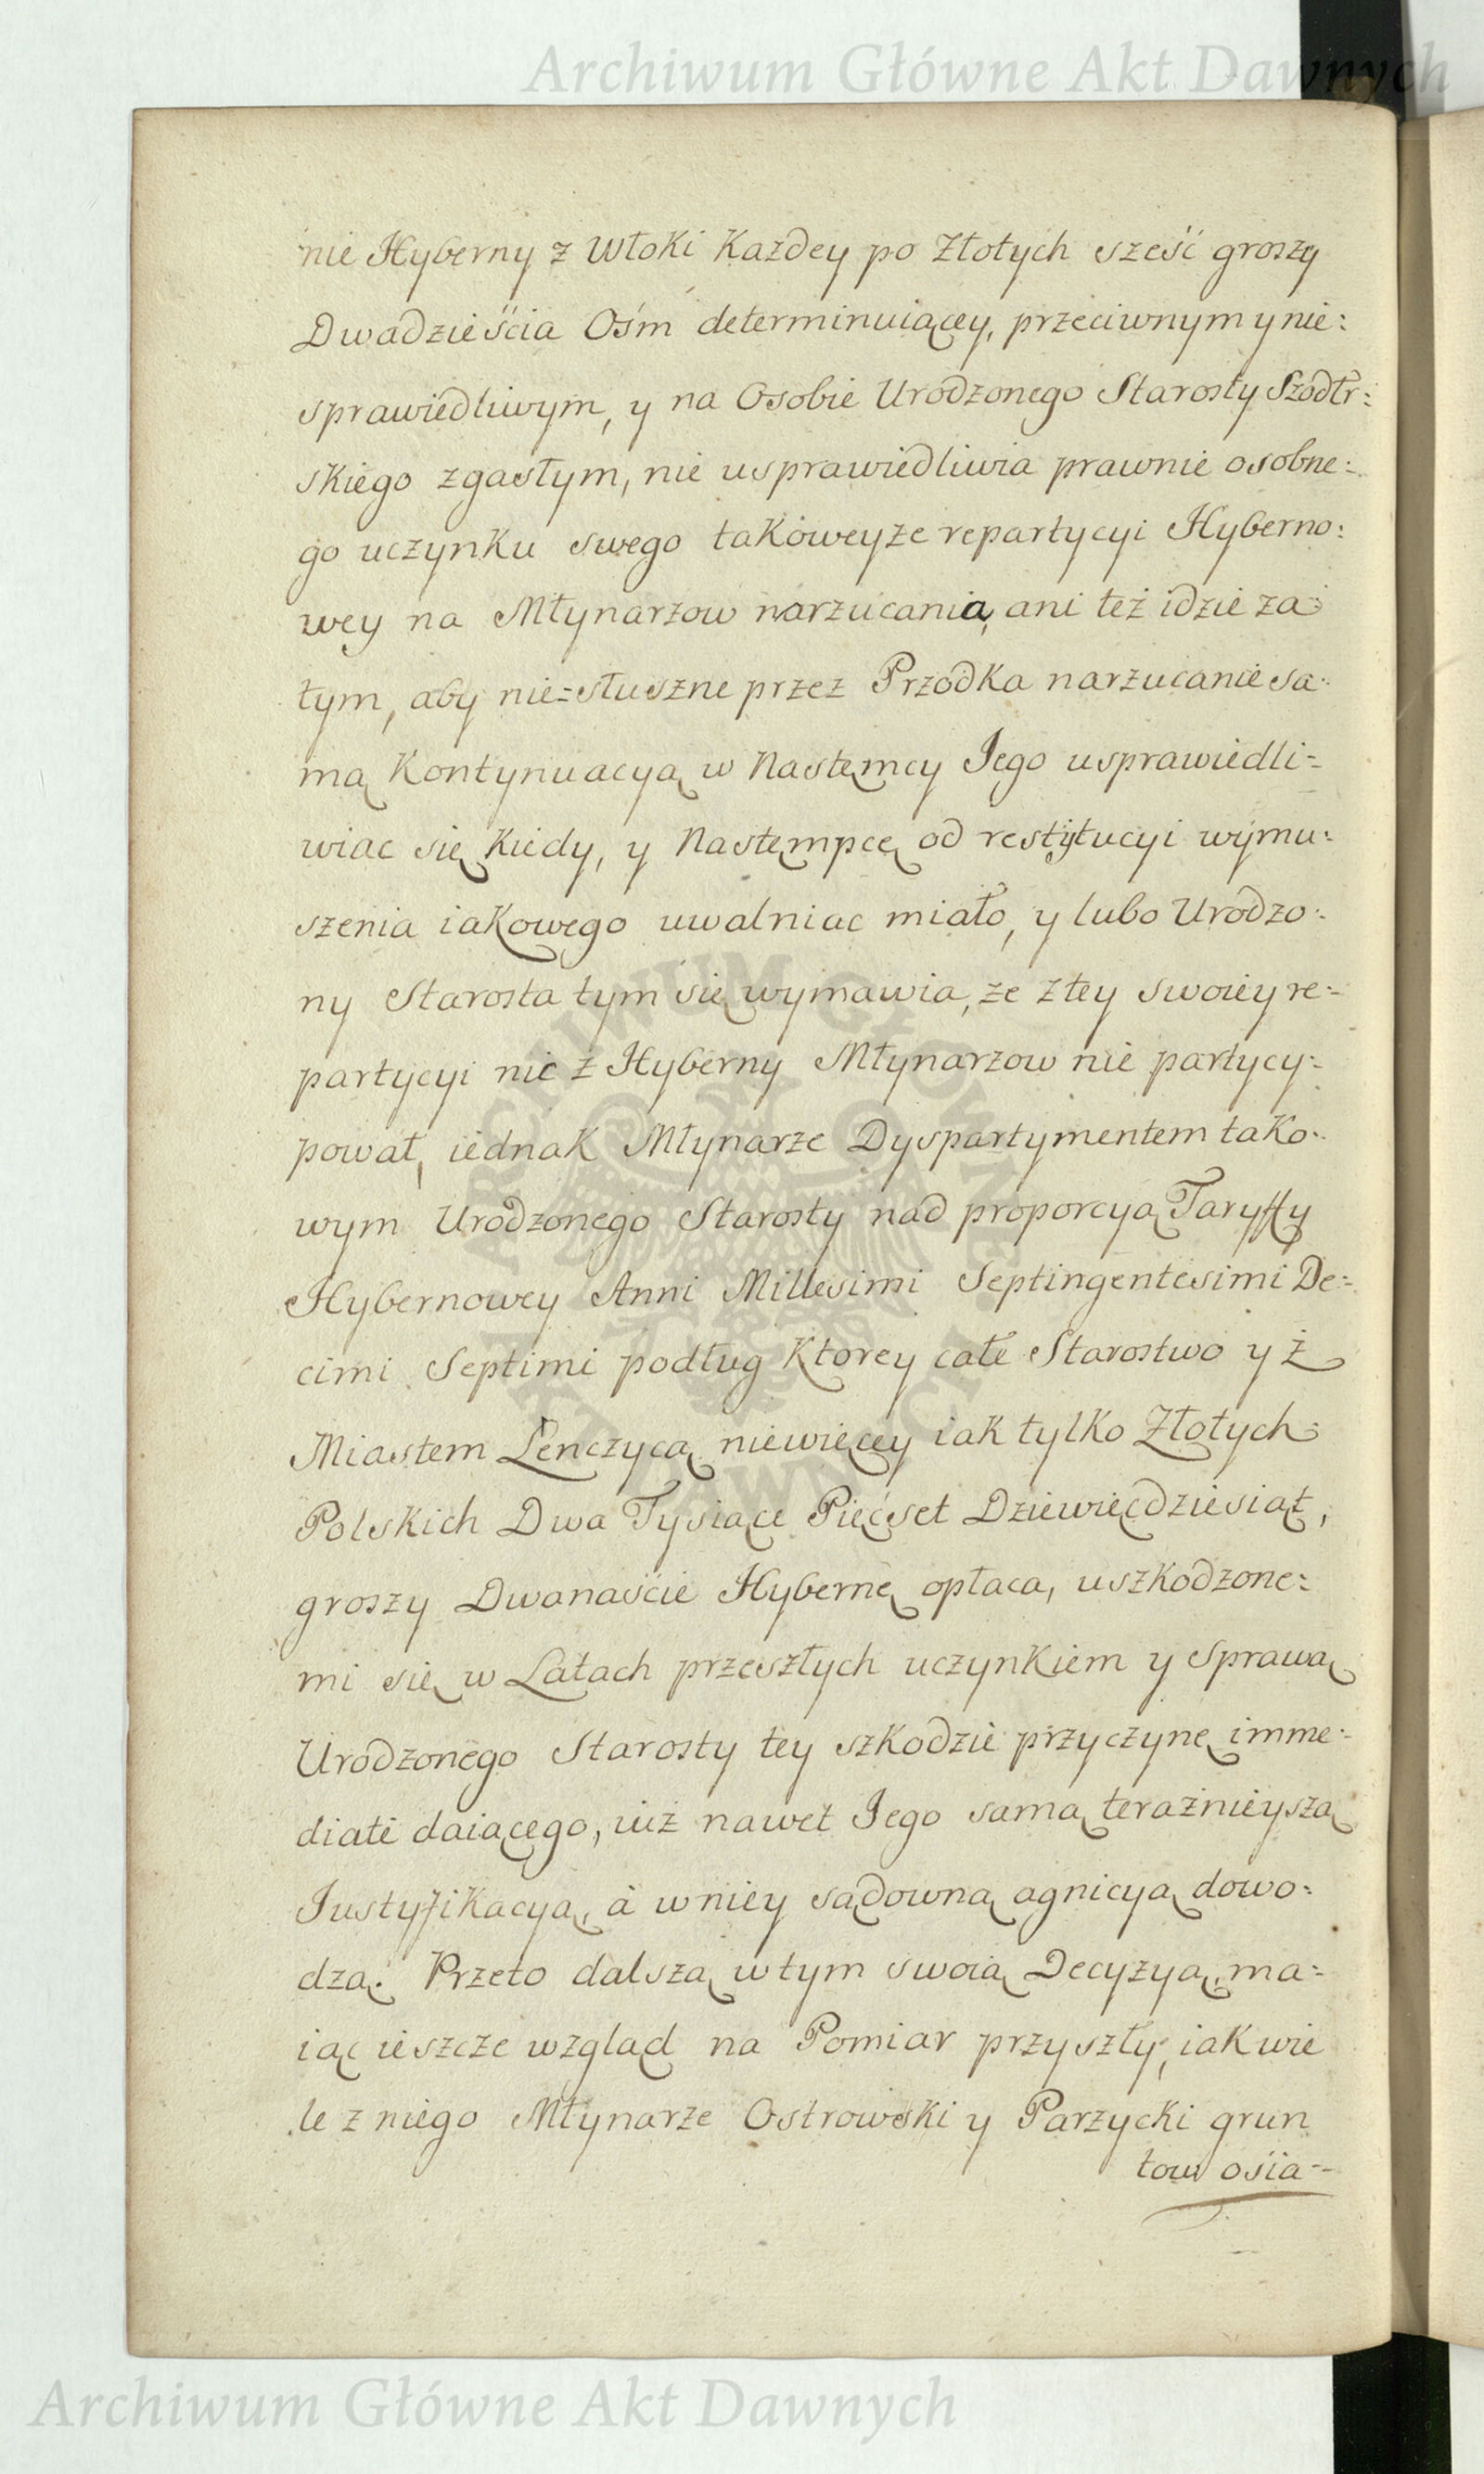 Archiwum Główne Akt Dawnych
nie Hyberny z Włoki Każdey po Złotych sześć groszy
Dwadzieścia Ośm determinuiącey, przeciwnym y nie:
sprawiedliwym, y na Osobie Urodzonego Starosty Szodłr:
skiego zgasłym, nie usprawiedliwia prawnie osobne:
go uczynku swego takoweyże repartycyi Hyberno:
wey na Młynarzow narzucania, ani też idzie za
tym, aby nie=słuszne przez Przodka narzucanie sa:
mą Kontynuacyą w Nastęmcy Jego usprawiedli=
wiac się Kiedy, y Nastęmpcę od restytucyi wymu:
szenia iakowego uwalniac miało, y lubo Urodzo:
ny Starosta tym się wymawia, że z tey swoiey re=
partycyi nic z Hyberny Młynarzow nie partycy:
pował, iednak Młynarze Dyspartymentem tako:
wym Urodzonego Starosty nad proporcyą Taryffy
Hybernowey Anni Millesimi Septingentesimi De=
cimi Septimi podług Ktorey całe Starostwo y z
Miastem Lenczycą niewięcey iak tylko Złotych
Polskich Dwa Tysiące Pięćset Dziewięcdziesiąt,
groszy Dwanaście Hybernę opłaca, uszkodzone:
mi się w Latach przeszłych uczynkiem y Sprawą
Urodzonego Starosty tey szkodzie przyczynę imme:
diate daiącego, iuż nawet Jego samą teraźnieyszą
Justyfikacyą, à w niey sądowną agnicyą dowo:
dzą. Przeto dalszą w tym swoią Decyzyą, ma=
iąc ieszcze wzgląd na Pomiar przyszły, iak wie
le z niego Młynarze Ostrowski y Parzycki grun
tow osia=
Archiwum Główne Akt Dawnych